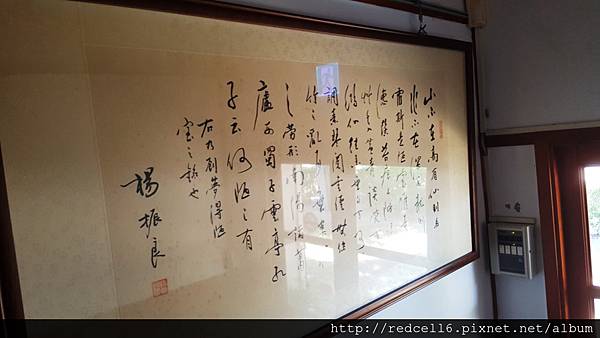 山不在高有仙則名
水不在深有龍則
靈斯是陋室惟吾
德馨苔痕上階綠
草色入簾青談笑有
鴻儒往來無白丁可以
調素琴閱金經無絲
竹之亂耳無案牘
之勞形南陽諸葛
廬西蜀子雲亭孔
子云何陋之有
右乃劉夢得陋
室之銘也
楊振良
http://redcell6.pixnet.net/album